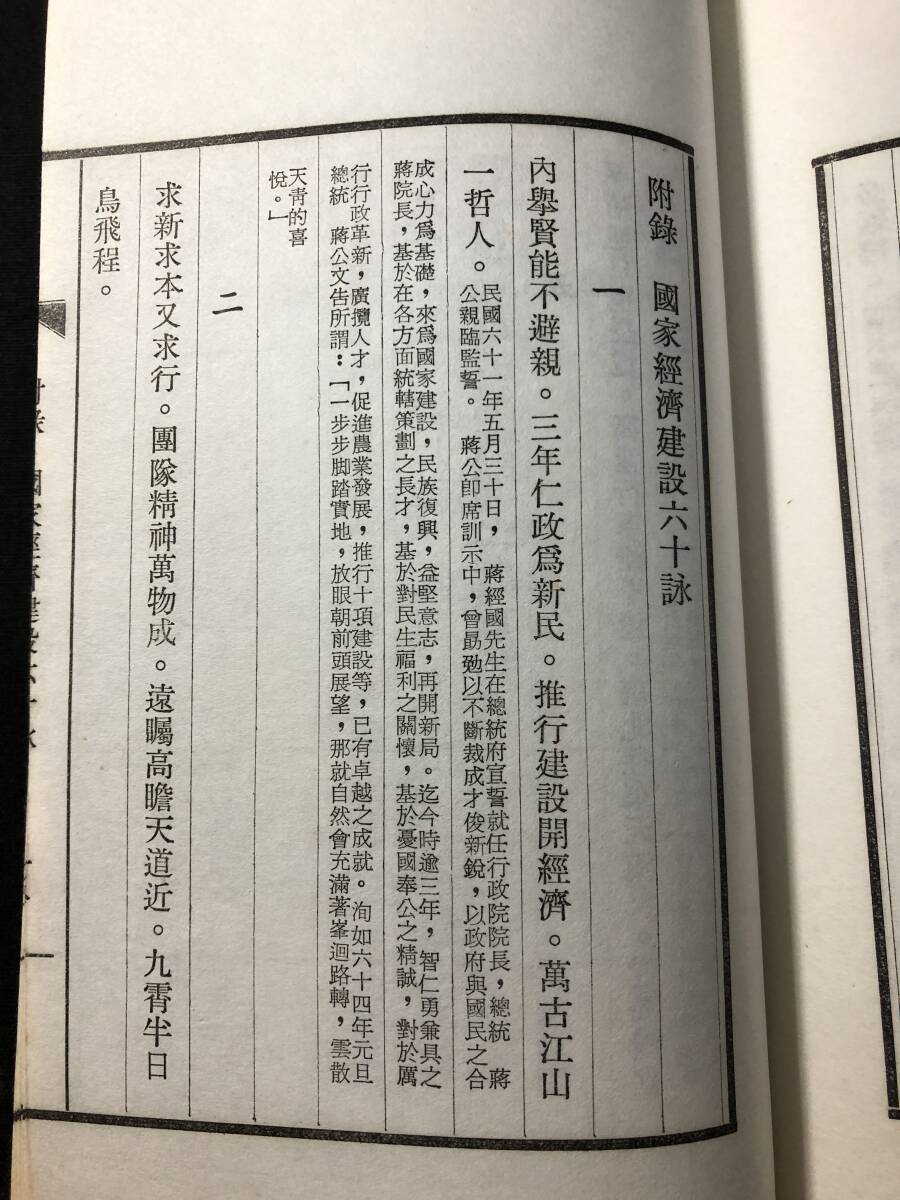 附錄　國家經濟建設六十詠
一
內舉賢能不避親。三年仁政爲新民。推行建設開經濟。萬古江山
一哲人。
民國六十一年五月三十日，蔣經國先生在總統府宣誓就任行政院院長，總統　蔣
公親臨監誓。　蔣公即席訓示中，曾勗勉以不斷裁成才俊新銳，以政府與國民之合
成心力爲基礎，來爲國家建設，民族復興，益堅意志，再開新局。迄今時逾三年，智仁勇兼具之
蔣院長，基於在各方面統轄策劃之長才，基於對民生福利之關懷，基於憂國奉公之精誠，對於厲
行行政革新，廣攬人才，促進農業發展，推行十項建設等，已有卓越之成就。洵如六十四年元旦
總統　蔣公文告所謂：「一步步脚踏實地，放眼朝前頭展望，那就自然會充滿著峯迴路轉，雲散
天青的喜
悅。」
二
求新求本又求行。團隊精神萬物成。遠矚高瞻天道近。九霄半日
鳥飛程。